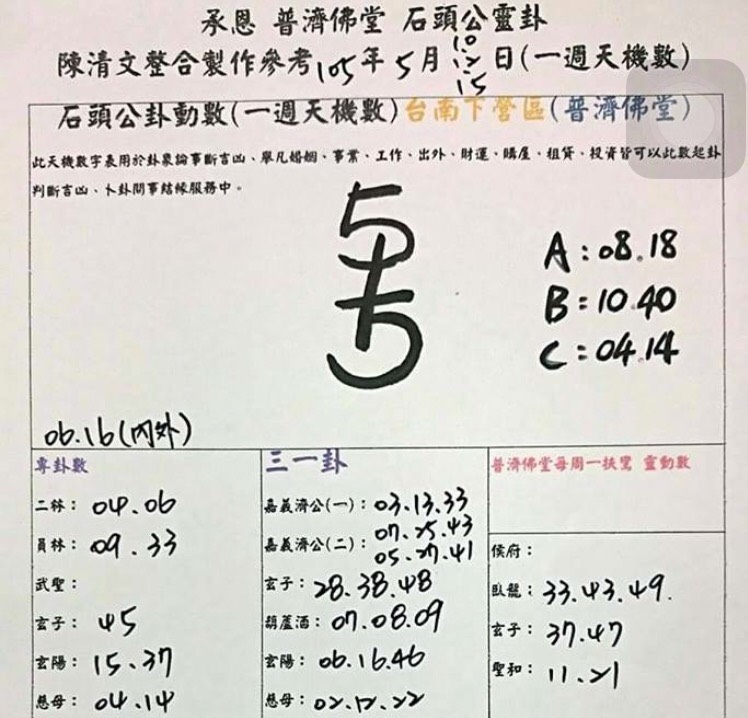 承恩 普濟佛堂 石頭公靈卦
陳清文整合製作參考105年5月10.12.15日(一週天機數)
石頭公卦動數(一週天機數)台南下營區(普濟佛堂)
此天機數字表用於卦象論事斷吉凶、舉凡婚姻、事業、工作、出外、財運、購屋、租賃、投資皆可以此數起卦
判斷吉凶、卜卦問事結緣服務中。
5
5
A:08.18
B:10.40
C:04.14
06.16(內外)
專卦數
二林:04.06
員林:09.33
武聖:
玄子:45
玄陽:15.37
慈母:04.14
三一卦
嘉義濟公(一):03.13.33
嘉義濟公(二):07.25.43
05.27.41
玄子:28.38.48
葫蘆酒:07.08.09
玄陽:06.16.46
慈母:02.12.22
普濟佛堂每周一扶鸞 靈動數
侯府:
臥龍:33.43.49.
玄子:37.47
聖和:11.21